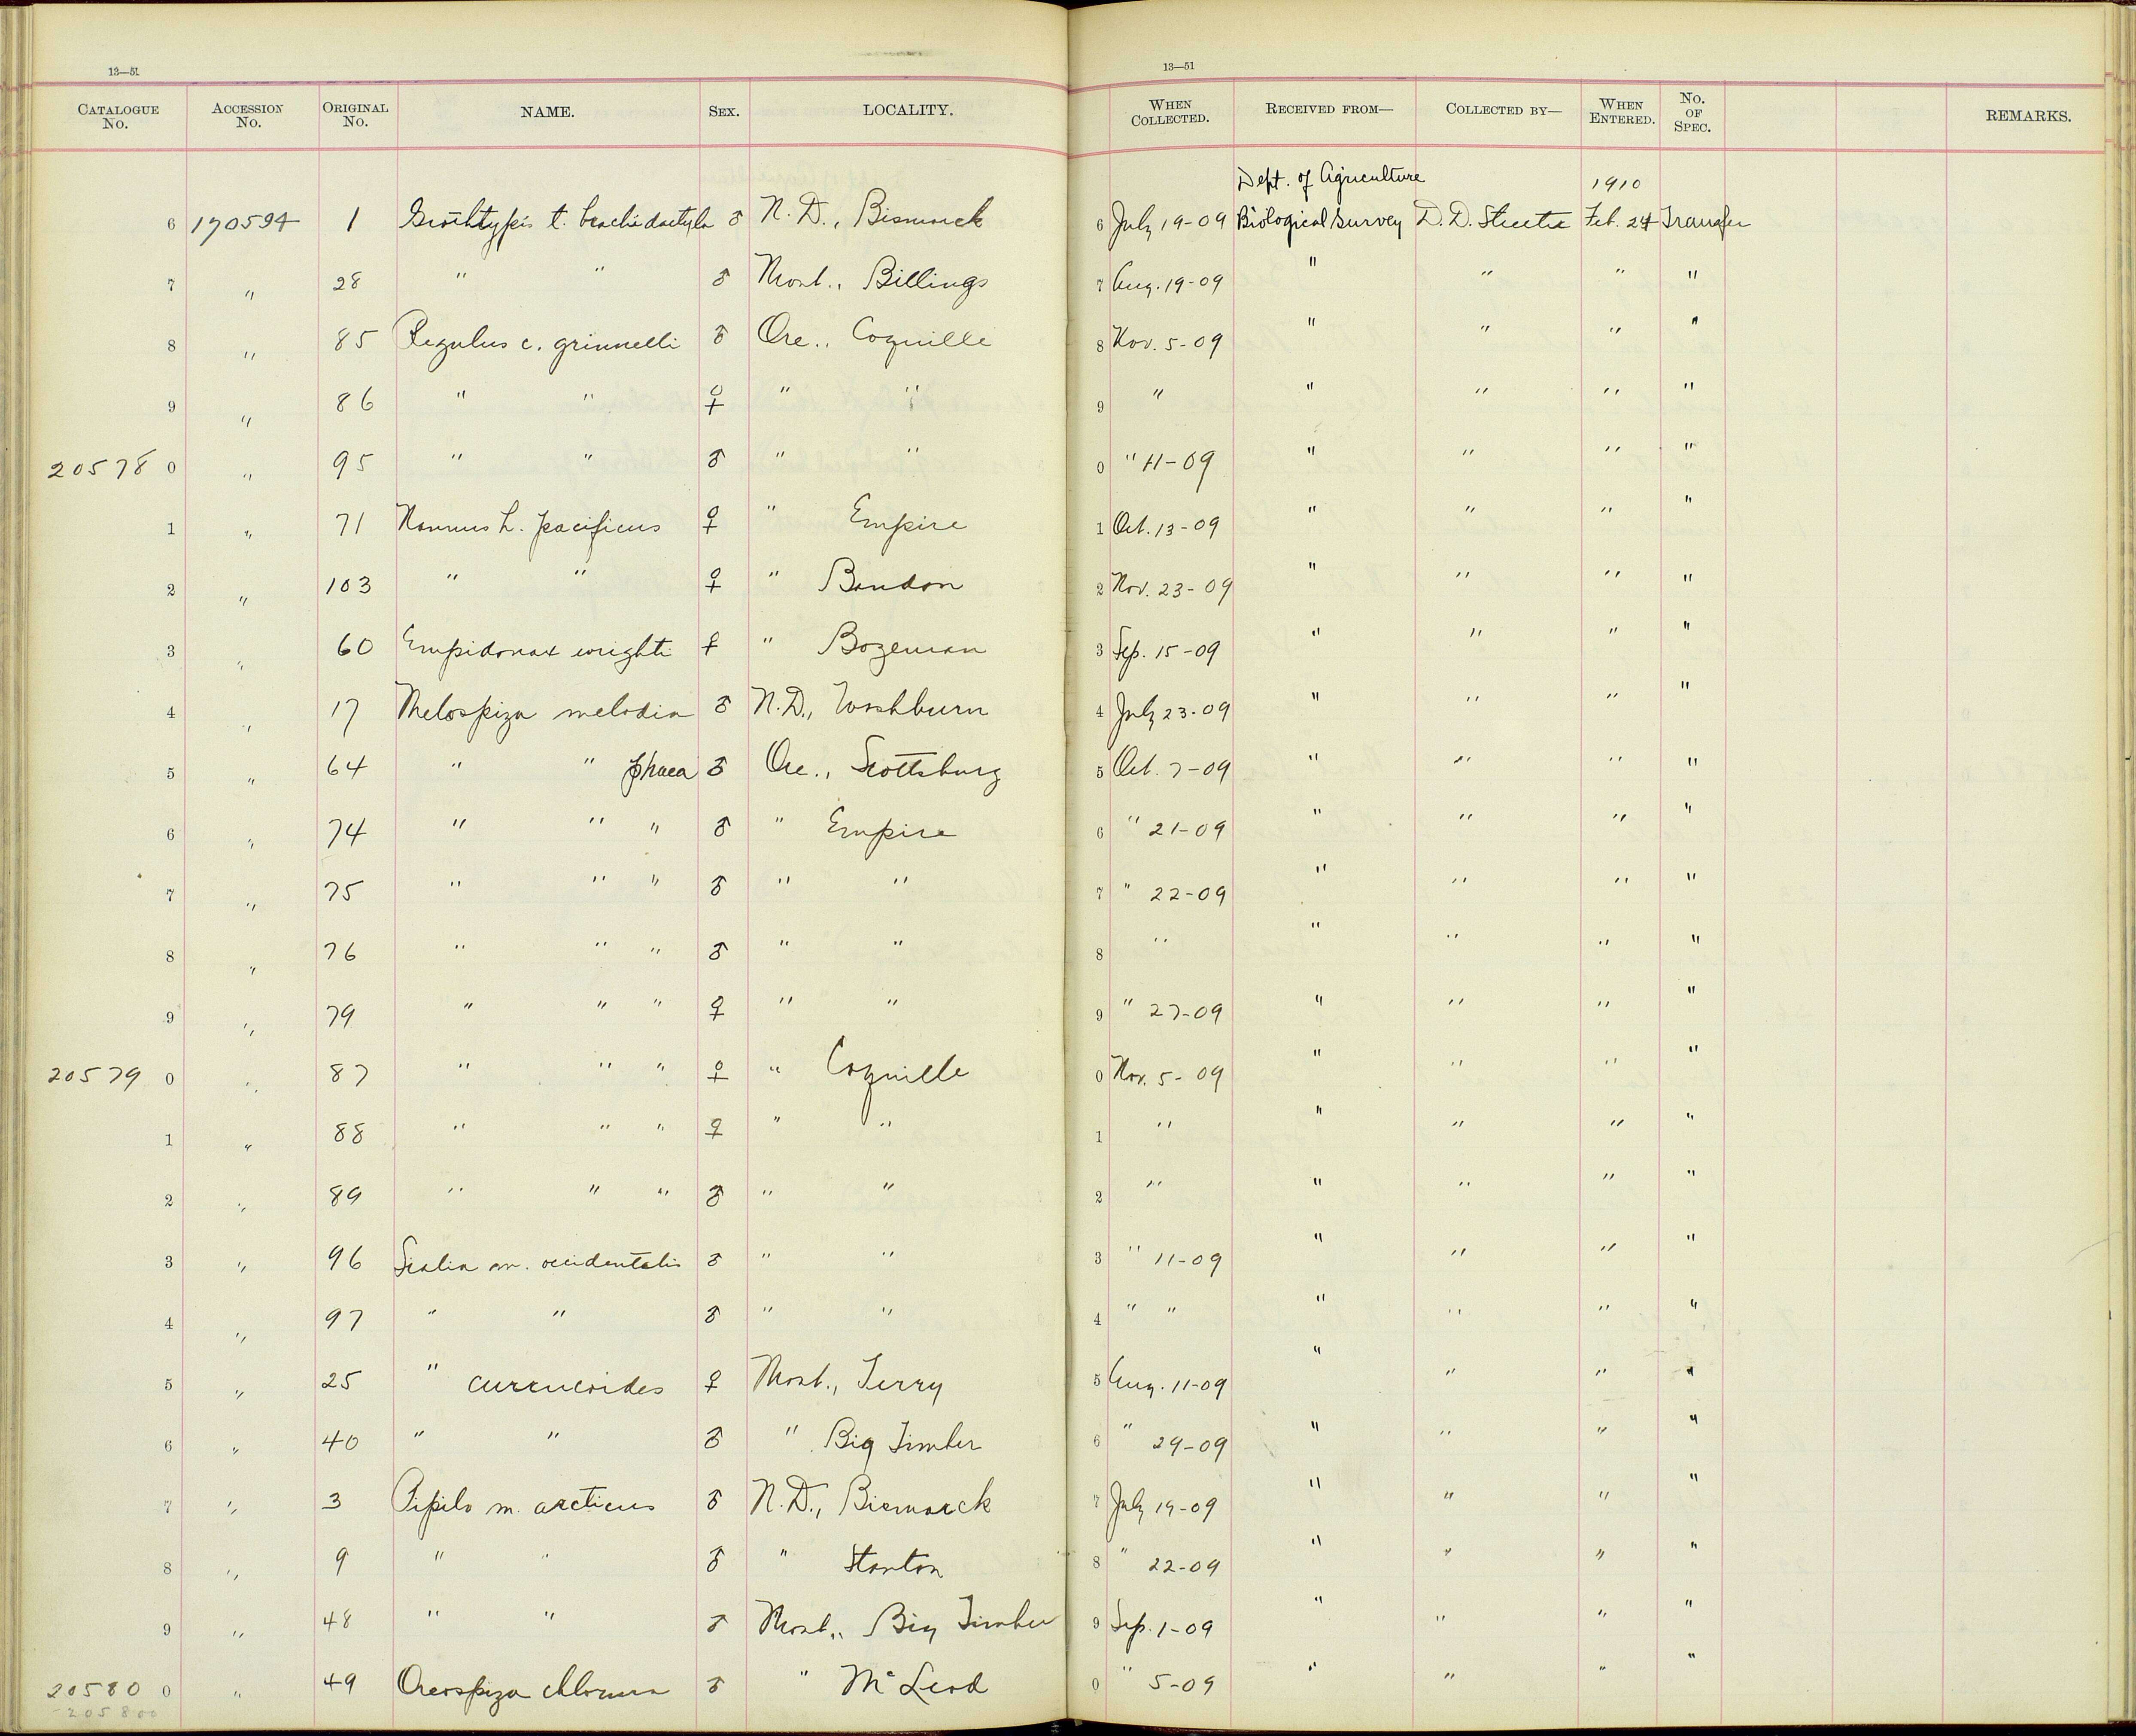 13—51 13—51
CATALOGUE No. ACCESSION No. ORIGINAL No. NAME. SEX. LOCALITY. WHEN COLLECTED. RECEIVED FROM— COLLECTED BY— WHEN ENTERED. No. OF SPEC. REMARKS.
Dept. of Agriculture 1910
6 170594 1 t. ♂ N. D., Bismarck 6 July 19-09 Biological Survey D. D. Streeter Feb. 24 Transfer
7 " 28 " " ♂ Mont., Billings 7 Aug. 19-09 " " " "
8 " 85 Regulus c. grinnelli ♂ Ore., Coquille 8 Nov. 5-09 " " " "
9 " 86 " " ♀ " " 9 " " " " "
20578 0 " 95 " " ♂ " " 0 " 11-09 " " " "
1 " 71 Nannus h. pacificus ♀ " Empire 1 Oct. 13-09 " " " "
2 " 103 " " ♀ " Bandon 2 Nov. 23-09 " " " "
3 " 60 Empidonax wrighti ♀ " Bozeman 3 Sep. 15-09 " " " "
4 " 17 Melospiza melodia ♂ N.D., Washburn 4 July 23-09 " " " "
5 " 64 " " phaea ♂ Ore., Scottsburg 5 Oct. 7-09 " " " "
6 " 74 " " " ♂ " Empire 6 " 21-09 " " " "
7 " 75 " " " ♂ " " 7 " 22-09 " " " "
8 " 76 " " " ♂ " " 8 " " " " "
9 " 79 " " " ♀ " " 9 " 27-09 " " " "
20579 0 " 87 " " " ♀ " Coquille 0 Nov. 5-09 " " " "
1 " 88 " " " ♀ " " 1 " " " " "
2 " 89 " " " ♂ " " 2 " " " " "
3 " 96 Sialia m. occidentalis ♂ " " 3 " 11-09 " " " "
4 " 97 " " ♂ " " 4 " " " " " "
5 " 25 " currucoides ♀ Mont., Terry 5 Aug. 11-09 " " " "
6 " 40 " " ♂ " Big Timber 6 " 29-09 " " " "
7 " 3 Pipilo m. arcticus ♂ N.D., Bismarck 7 July 19-09 " " " "
8 " 9 " " ♂ " Stanton 8 " 22-09 " " " "
9 " 48 " " ♂ Mont., Big Timber 9 Sep. 1-09 " " " "
20580 0 " 49 Oreospiza chlorura ♂ " McLeod 0 " 5-09 " " " "
205800